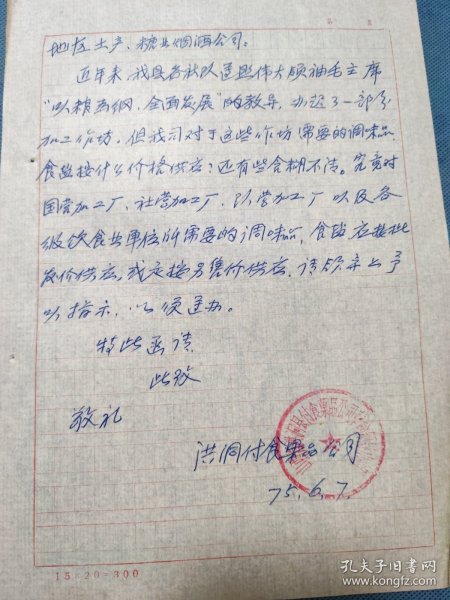 第 页
地区土产、糖业烟酒公司。
近年来，我县各社队遵照伟大领袖毛主席
“以粮为纲，全面发展”的教导，办起了一部分
加工作坊，但我司对于这些作坊需要的调味品、
食盐按什么价格供应？还有些含糊不清。究竟对
国营加工厂、社营加工厂、队营加工厂以及各
级饮食业单位所需要的调味品、食盐应按批
发价供应，或是按另售价供应，请领导上予
以指示，以便遵办。
特此函请
此致
敬礼
洪洞付食果品公司
75.6.7.
15×20=300
孔夫子旧书网
www.kongfz.com